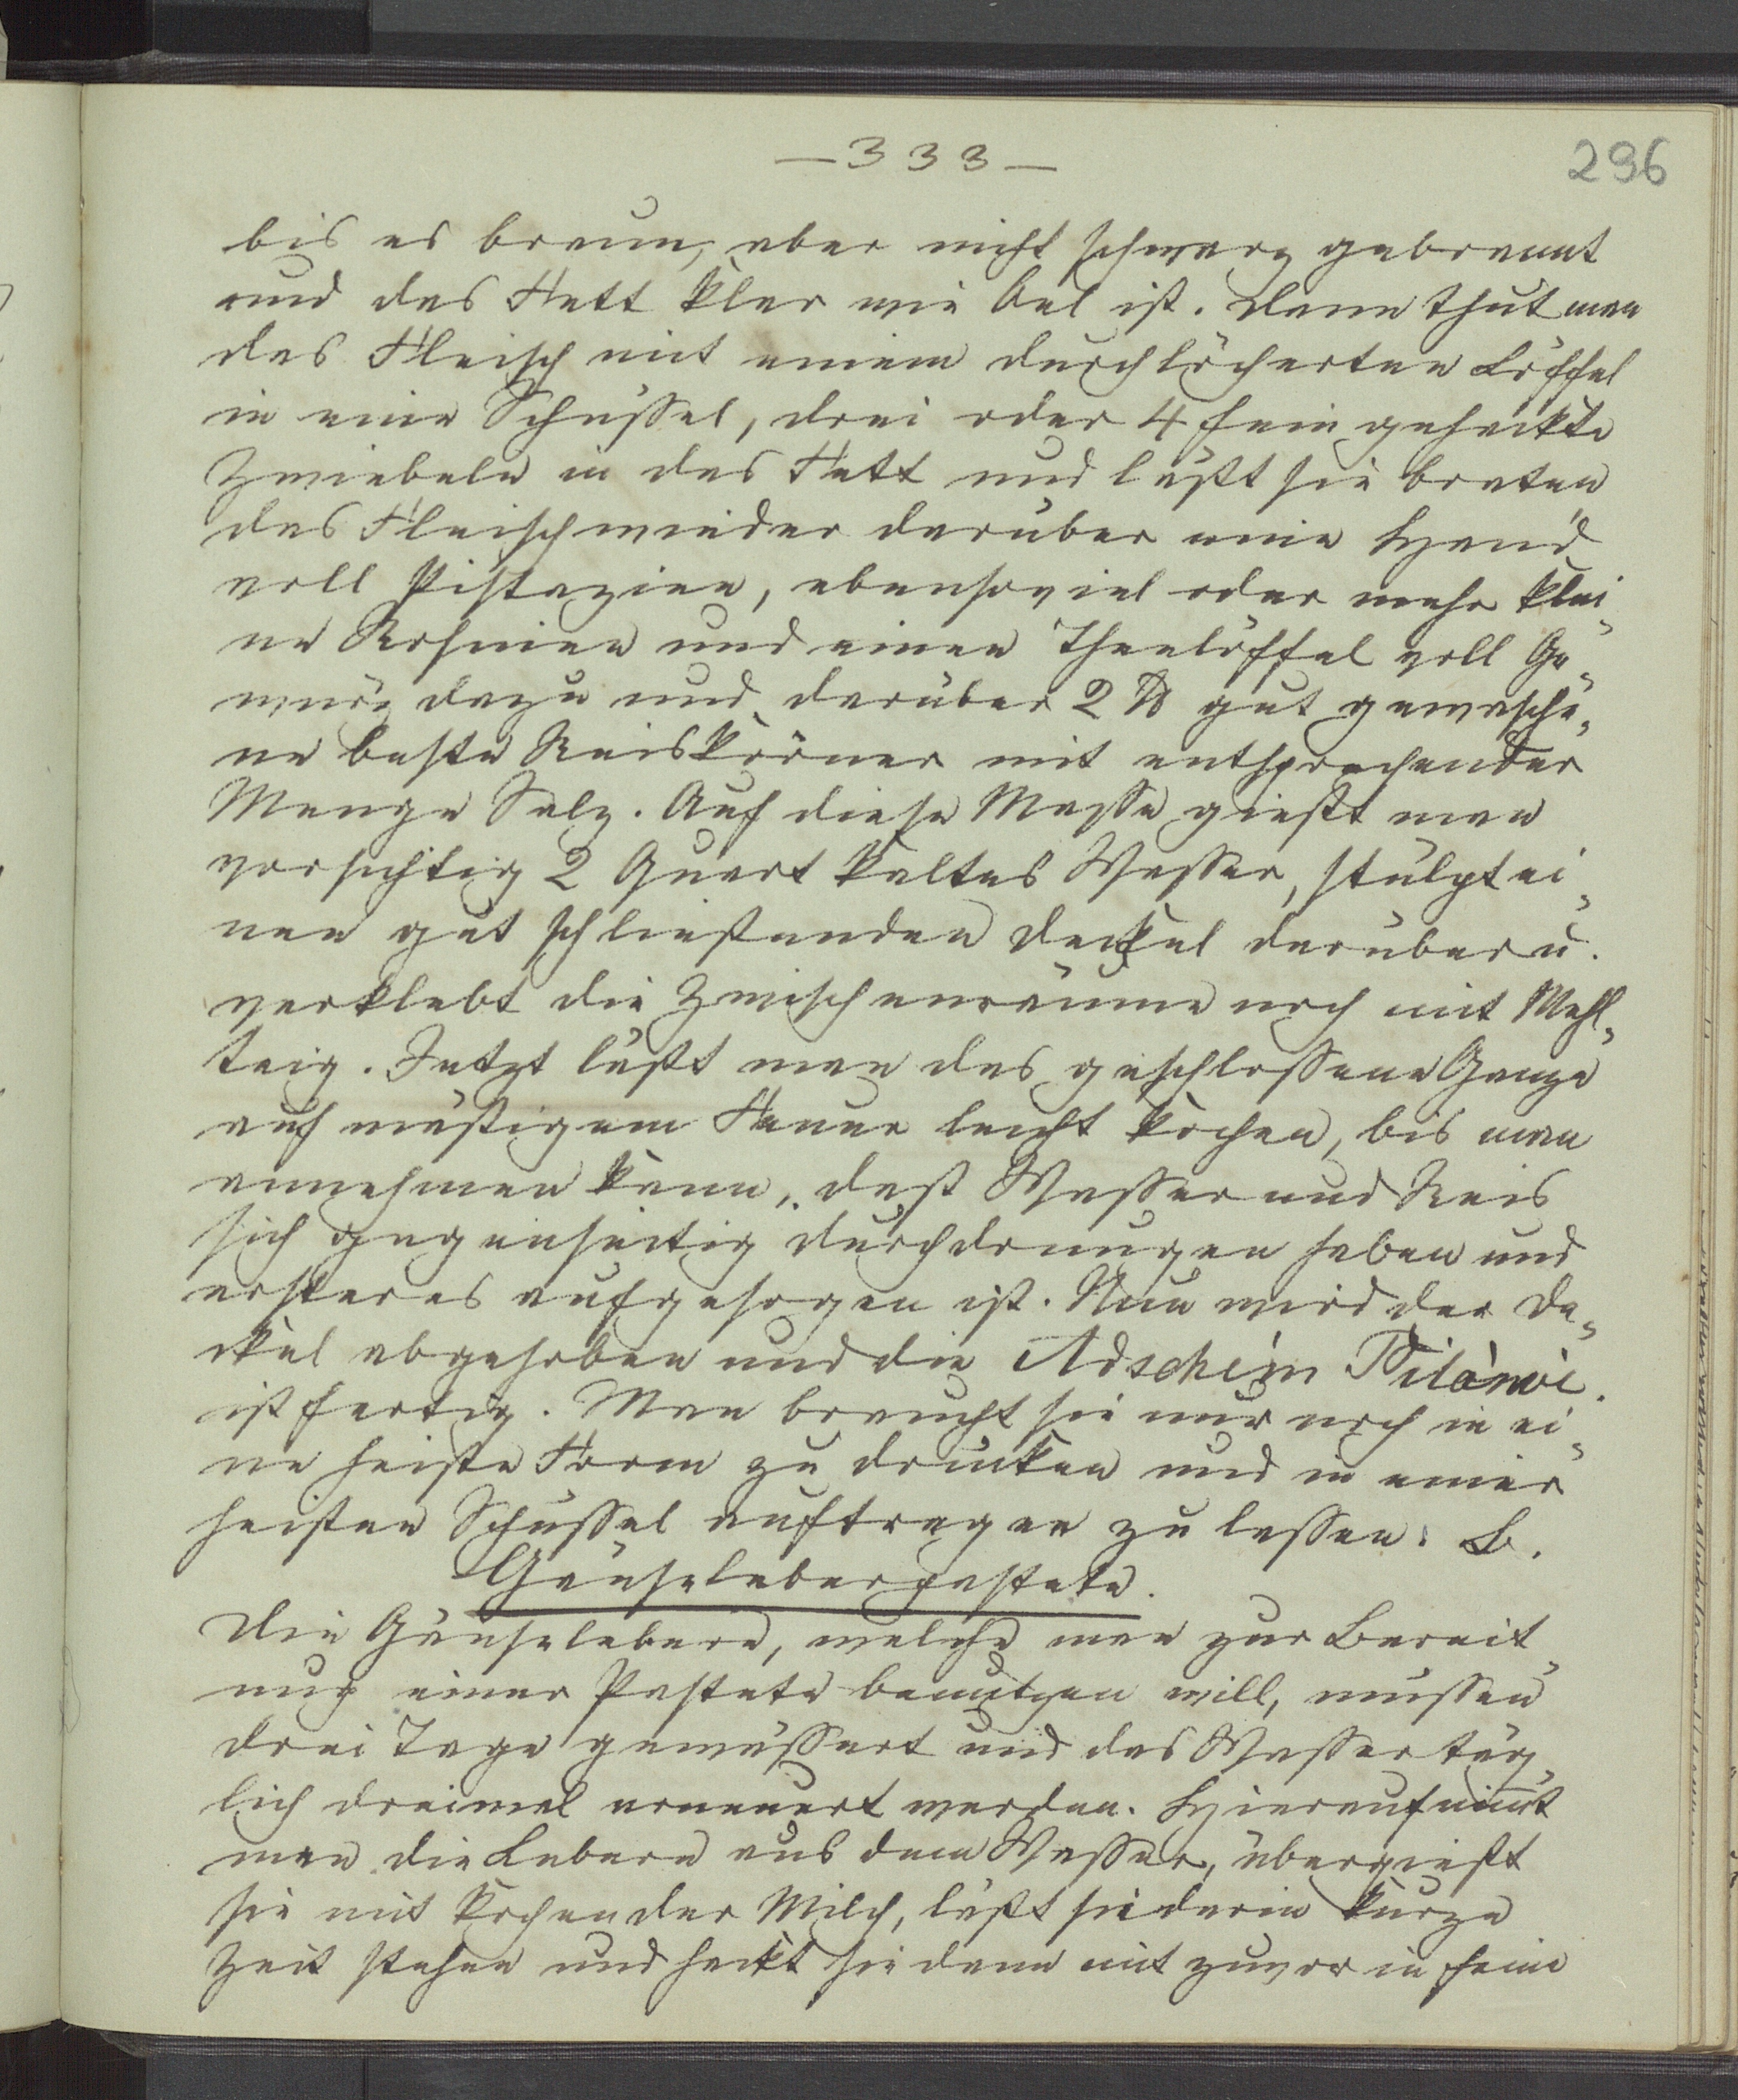 — 333 —
296
bis es braun, aber nicht schwarz gebrannt
und das Fett klar wie Oel ist. Dann thut man
das Fleisch mit einem durchlöcherten Löffel
in eine Schüssel, drei oder 4 fein gehackte
Zwiebeln in das Fett und läßt sie braten
das Fleisch wieder darüber eine Hand
voll Pistazien, ebensoviel oder mehr klei„
ne Rosinen und einen Theelöffel voll Ge„
würz dazu und darüber 2 ℔ gut gewasche„
ne beste Reiskörner mit entsprechender
Menge Salz. Auf diese Masse gießt man
vorsichtig 2 Quart kaltes Wasser, stülpt ei„
nen gut schließenden Deckel darüber u.
verklebt die Zwischenräume noch mit Mehl„
teig. Jetzt läßt man das geschlossene Ganze
auf mäßigem Feuer leicht kochen, bis man
annehmen kann, daß Wasser und Reis
sich gegenseitig durchdrungen haben und
ersteres aufgesogen ist. Nun wird der De„
ckel abgehoben und die Adschém Pilàwi.
ist fertig. Man braucht sie nur noch in ei„
ne heiße Form zu drücken und in einer
heißen Schüssel auftragen zu lassen. B.
Gänseleberpastete.
Die Gänselebern, welche man zur Bereit„
ung einer Pastete benutzen will, müssen
drei Tage gewässert und das Wasser täg„
lich dreimal erneuert werden. Hierauf nim̅t
man die Lebern aus dem Wasser, übergießt
sie mit kochender Milch, läßt sie darin kurze
Zeit stehen und hackt sie dann mit zuvor in feine